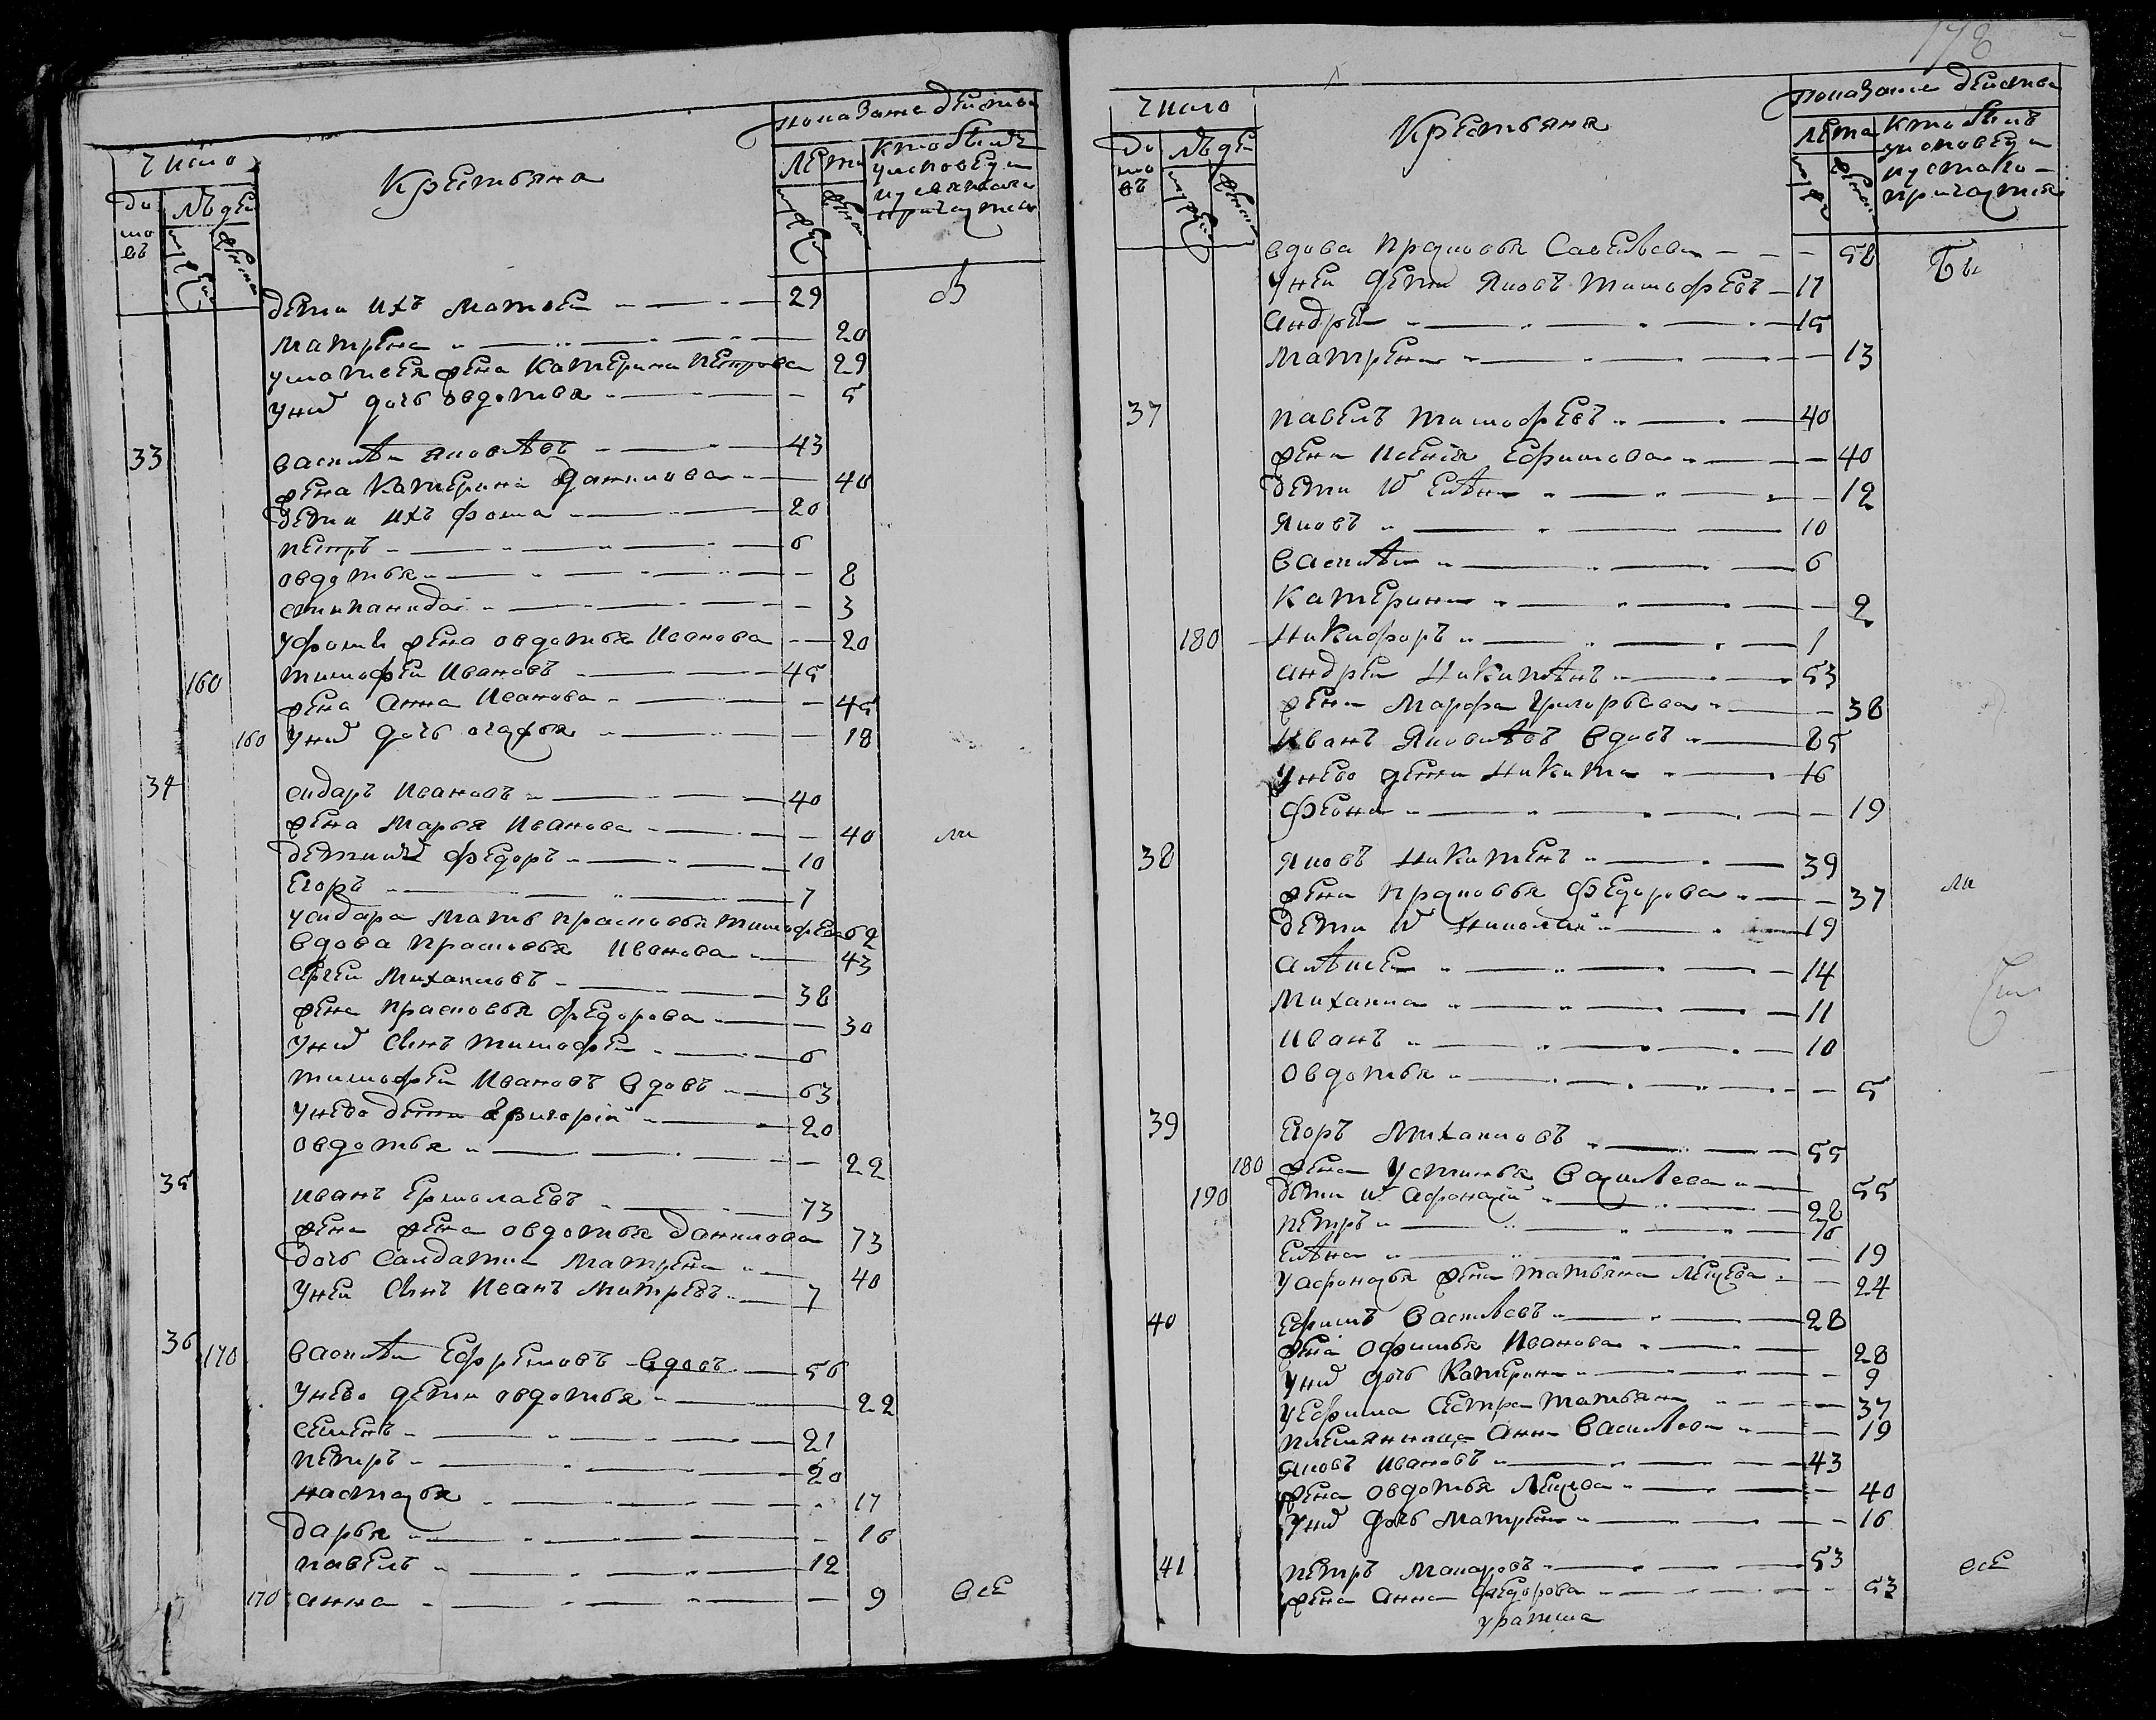 число
домовъ
людей
мужеск
женска
Крестьяна
показание действа
лета
мужеска
женска
кто былъ у исповеди и у святаго причастия
дети ихъ Матвей 29
Матрена 20
у Матвея жена Катерина Петрова 29
у них дочь овдотья 5
33 василѣи яковлѣвъ 43
жена Катерина Данилова 40
дети ихъ Фома 20
петръ 6
овдотья 8
степанида 3
у Фоми жена овдотья Иванова 20
160 тимофей Ивановъ 45
жена Анна Иванова 45
160 у них дочь огафья 18
34 сидаръ Ивановъ 40
жена Марья Иванова 40 ли
дети их федоръ 10
Егоръ 7
у сидара мать прасковья тимофеева 62
вдова прасковья Иванова 43
сергеи Михаиловъ 38
жена прасковья федорова 30
у них сынъ тимофеи 6
тимофеи Ивановъ вдовъ 63
у нево дети Григорiй 20
овдотья 22
35 Иванъ Ермолаевъ 73
жена жена овдотья Данилова 73
дочь салдатка Матрена 40
у неи сынъ Иванъ Митревъ 7
36 170 василѣи Ефремовъ вдовъ 56
у нево дети овдотья 22
семенъ 21
петръ 20
настасья 17
дарья 16
павелъ 12
170 анна 9 все
178
число
домовъ
людей
мужеск
женска
Крестьяна
показание действа
лета
мужеска
женска
кто былъ у исповеди и у святаго причастия
вдова прасковья Савельева 58 Бы
у неи дети Яковъ тимофеевъ 17
андреи 15
матрена 13
37 павелъ тимофеевъ 40
жена ксенiя Ефимова 40
дети их елѣна 12
яковъ 10
василѣи 6
Катерина 2
180 никифоръ 1
андреи Никитѣнъ 53
жена Марфа григорьева 38
Иванъ Яковлѣвъ вдовъ 85
у нево дети никита 16
Феона 19
38 яковъ никитенъ 39
жена прасковья федорова 37 ли
дети их николай 19
алѣксеи 14
михаила 11
Иванъ 10
овдотья 5
39 Егоръ Михаиловъ 55
180 жена устинья Васильева 55
190 дети их афонасiй 28
петръ 16
елѣна 19
у афонасья жена татьяна 24
40 Ефимъ васильевъ 28
жена офимья Иванова 28
у них дочь катерина 9
у ефима сестра татьяна 37
племянница анна васильева 19
яковъ Ивановъ 43
жена овдотья 40
у них дочь матрена 16
41 петръ Макаровъ 53 все
жена анна федорова 53